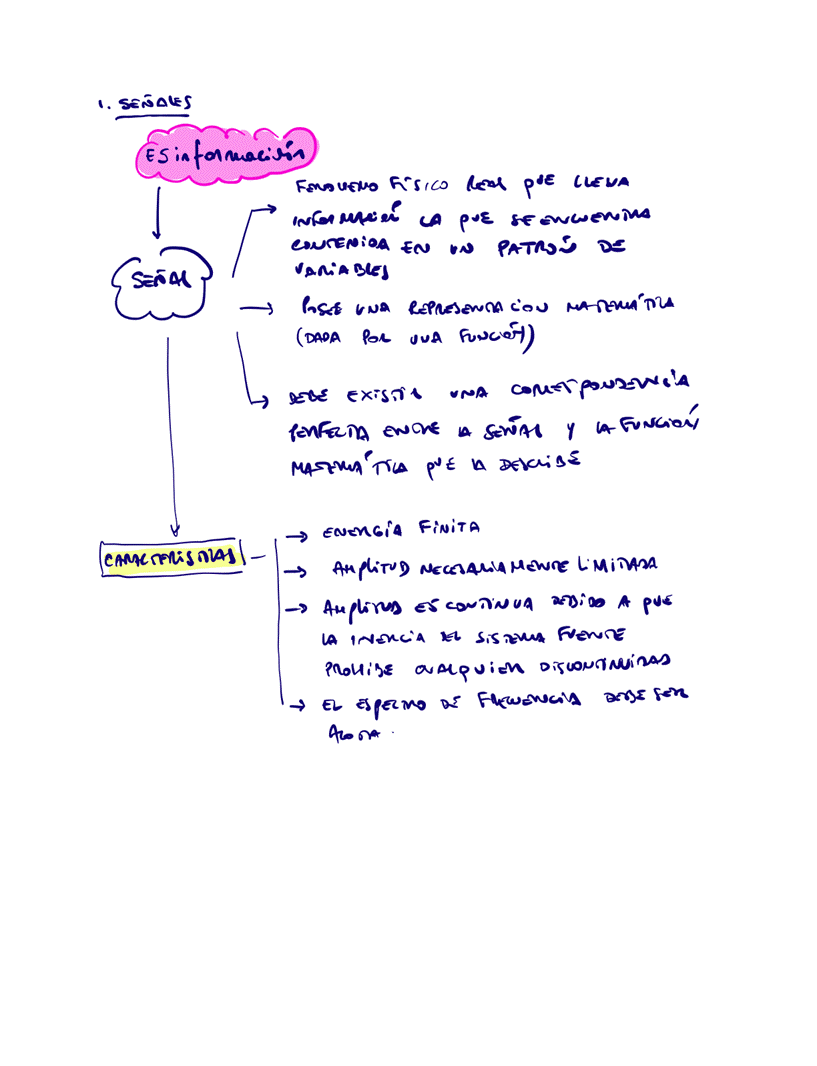 1. SEÑALES
ES información
FENOMENO FÍSICO REAL QUE LLEVA
INFORMACIÓN LA QUE SE ENCUENTRA
CONTENIDA EN UN PATRÓN DE
VARIABLES
SEÑAL
POSEE UNA REPRESENTACION MATEMÁTICA
(DADA POR UNA FUNCIÓN)
DEBE EXISTIR UNA CORRESPONDENCIA
PERFECTA ENTRE LA SEÑAL Y LA FUNCIÓN
MATEMÁTICA QUE LA DESCRIBE
ENERGÍA FINITA
CARACTERISTICAS
AMPLITUD NECESARIAMENTE LIMITADA
AMPLITUD ES CONTINUA DEBIDO A QUE
LA INERCIA DEL SISTEMA FUENTE
PROHIBE CUALQUIER DISCONTINUIDAD
EL ESPECTRO DE FRECUENCIA DEBE SER